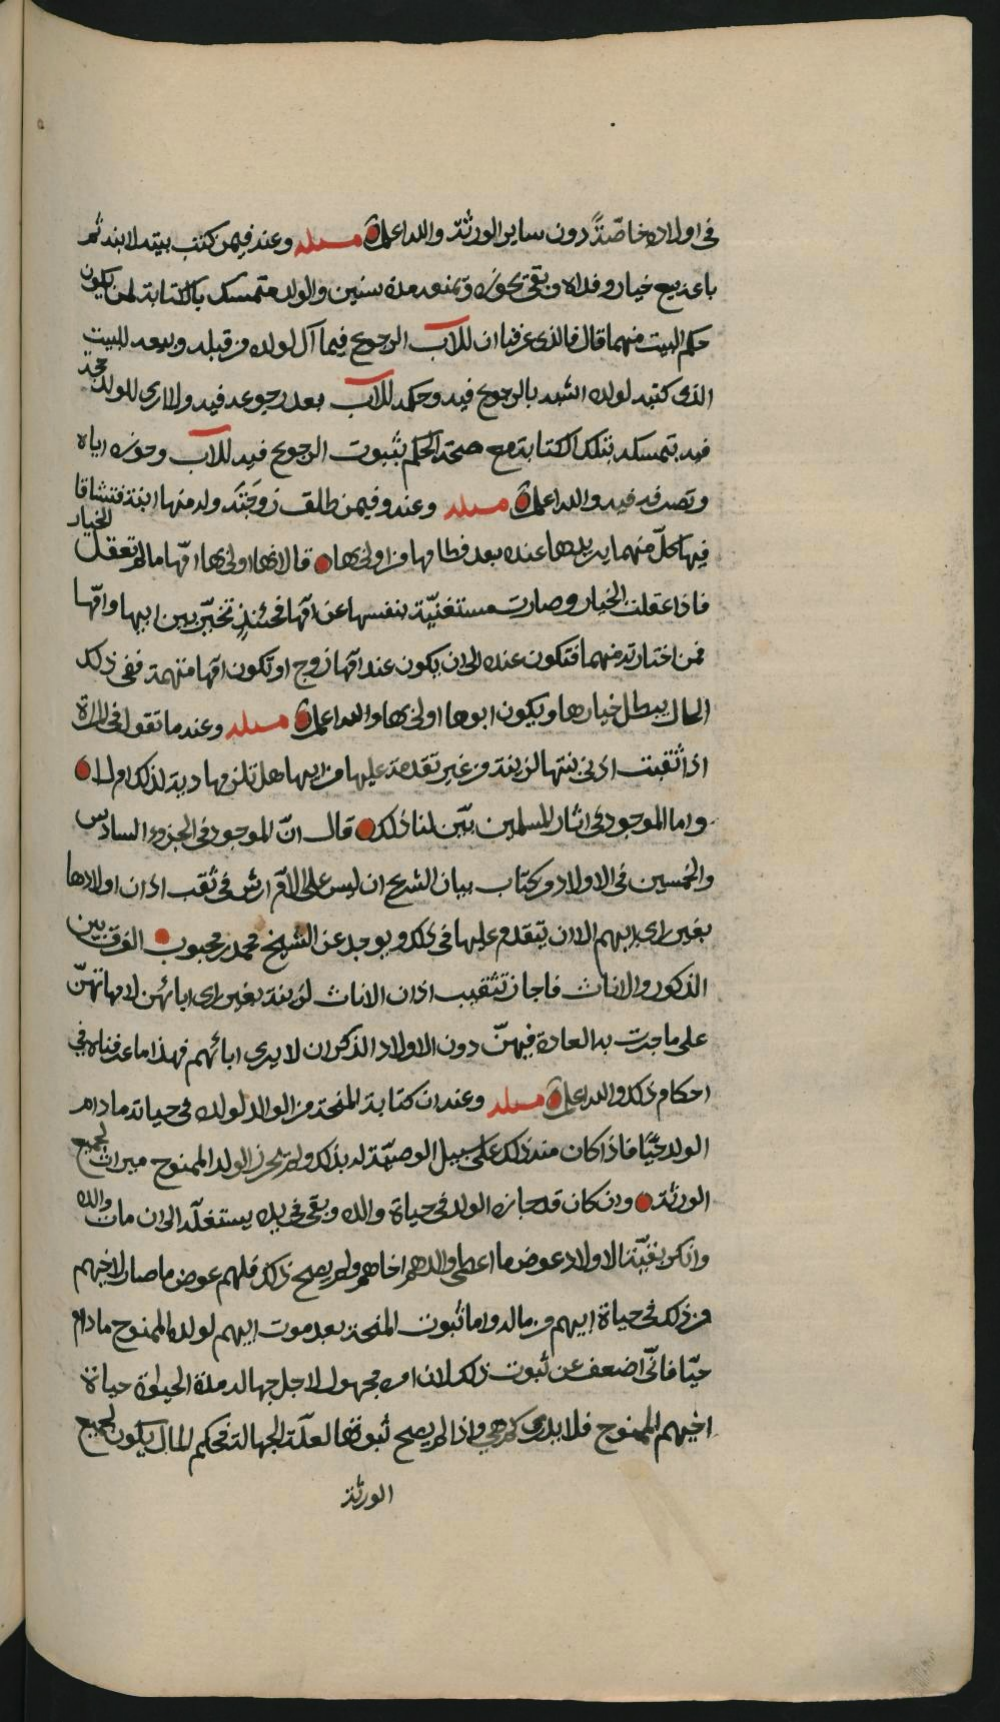 في اولاده خاصّةً دون ساير الورثة والله اعلم مسئلة وعنه فيمن كتب بيته لابنه ثم
باعه بيع خيار وفداه وبقى يحوزه ويمنعه مدة سنين والولد متمسك بالكتابة لمن يكون
حكم البيت منهما قال فالذي عرفنا ان للاب الرجوع فيما آل لولده من قبله وبيعه للبيت
الذي كتبه لولده اشبه بالرجوع فيه وحكمه للاب بعد رجوعه فيه ولا ارى للولد حجة
فيه بتمسكه بتلك الكتابة مع صحة الحكم بثبوت الرجوع فيه للاب وحوزه اياه
وتصرفه فيه والله اعلم مسئلة وعنه وفيمن طلق زوجته وله منها ابنة فتشاقا
فيها كلّ منهما يريدها عنده بعد فطامها من اولى بها قال انها اولى بها امّها ما لم تعقل الخيار
فاذا عقلت الخيار وصارت مستغنيّة بنفسها عن امّها فحينئذٍ تخيّر بين ابيها وامّها
فمن اختارته منهما فتكون عنده الى ان يكون عند امّها زوج او تكون امّها متهمة ففي ذلك
الحال يبطل خيارها ويكون ابوها اولى بها والله اعلم مسئلة وعنه ما تقول في المراة
اذا ثقبت اذني بنتها لزينة من غير تقدمة عليها من ابيها هل تلزمها دية لذلك ام لا
وما الموجود في اثار المسلمين بيّن لنا ذلك قال انّ الموجود في الجزوء السادس
والخمسين في الاولاد من كتاب بيان الشرع ان ليس على الامّ ارش في ثقب اذان اولادها
بغير راي ابيهم الا ان يتقدم عليها في ذلك ويوجد عن الشيخ محمد بن محبوب الفرق بين
الذكور والاناث فاجاز تثقيب اذان الاناث لزينة بغير راى ابائهن لامهاتهنّ
على ما جرت به العادة فيهنّ دون الاولاد الذكران لا يرى ابائهم فهذا ما عرفناه في
احكام ذلك والله اعلم مسئلة وعنه ان كتابة المنحة من الوالد لولده في حياته مادام
الولد حيًّا فاذا كان منه ذلك على سبيل الوصيّة له بذلك ولم يحرز الولد الممنوح ميراث لجميع
الورثة وان كان قد حازه الولد في حياة والده وبقى في يده يستغلّه الى ان مات والده
وانكر بقيّة الاولاد عوض ما اعطى والدهم اخاهم ولم يصح ذلك فلهم عوض ما صار لاخيهم
من ذلك في حياة ابيهم من ماله واما ثبوت المنحة بعد موت ابيهم لولده الممنوح مادام
حيّا فانّي اضعف عن ثبوت ذلك لانه امر مجهول لاجل جهالة مدة الحيوة حياة
اخيهم الممنوح فلا يدرى كم هي واذا لم يصح ثبوتها لعلّة الجهالة فحكم المال يكون لجميع
الورثة